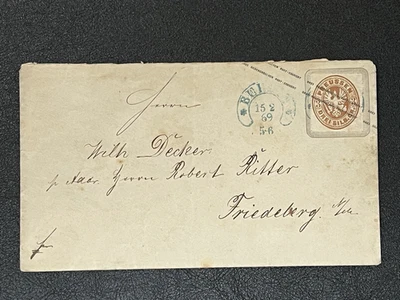 BEI
15 2
69
5-6
PREUSSEN
DREI SILB. GR.
Herrn
Wilh Decker
Herrn Robert Ritter
Friedeberg